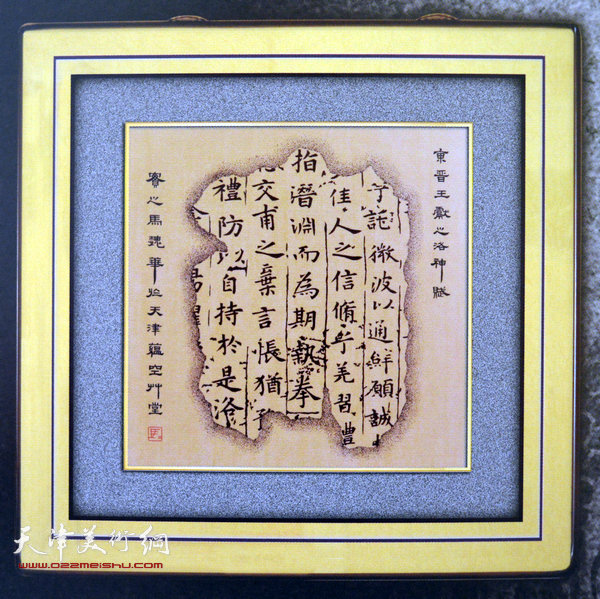 東晋王獻之洛神賦
兮託微波以通辭願誠
佳人之信脩乎羌習豊
指潛淵而為期執拳
交甫之棄言悵猶
禮防以自持於是洛
寳之馬魏華於天津蘊空艸堂
天津美術網
www.022meishu.com